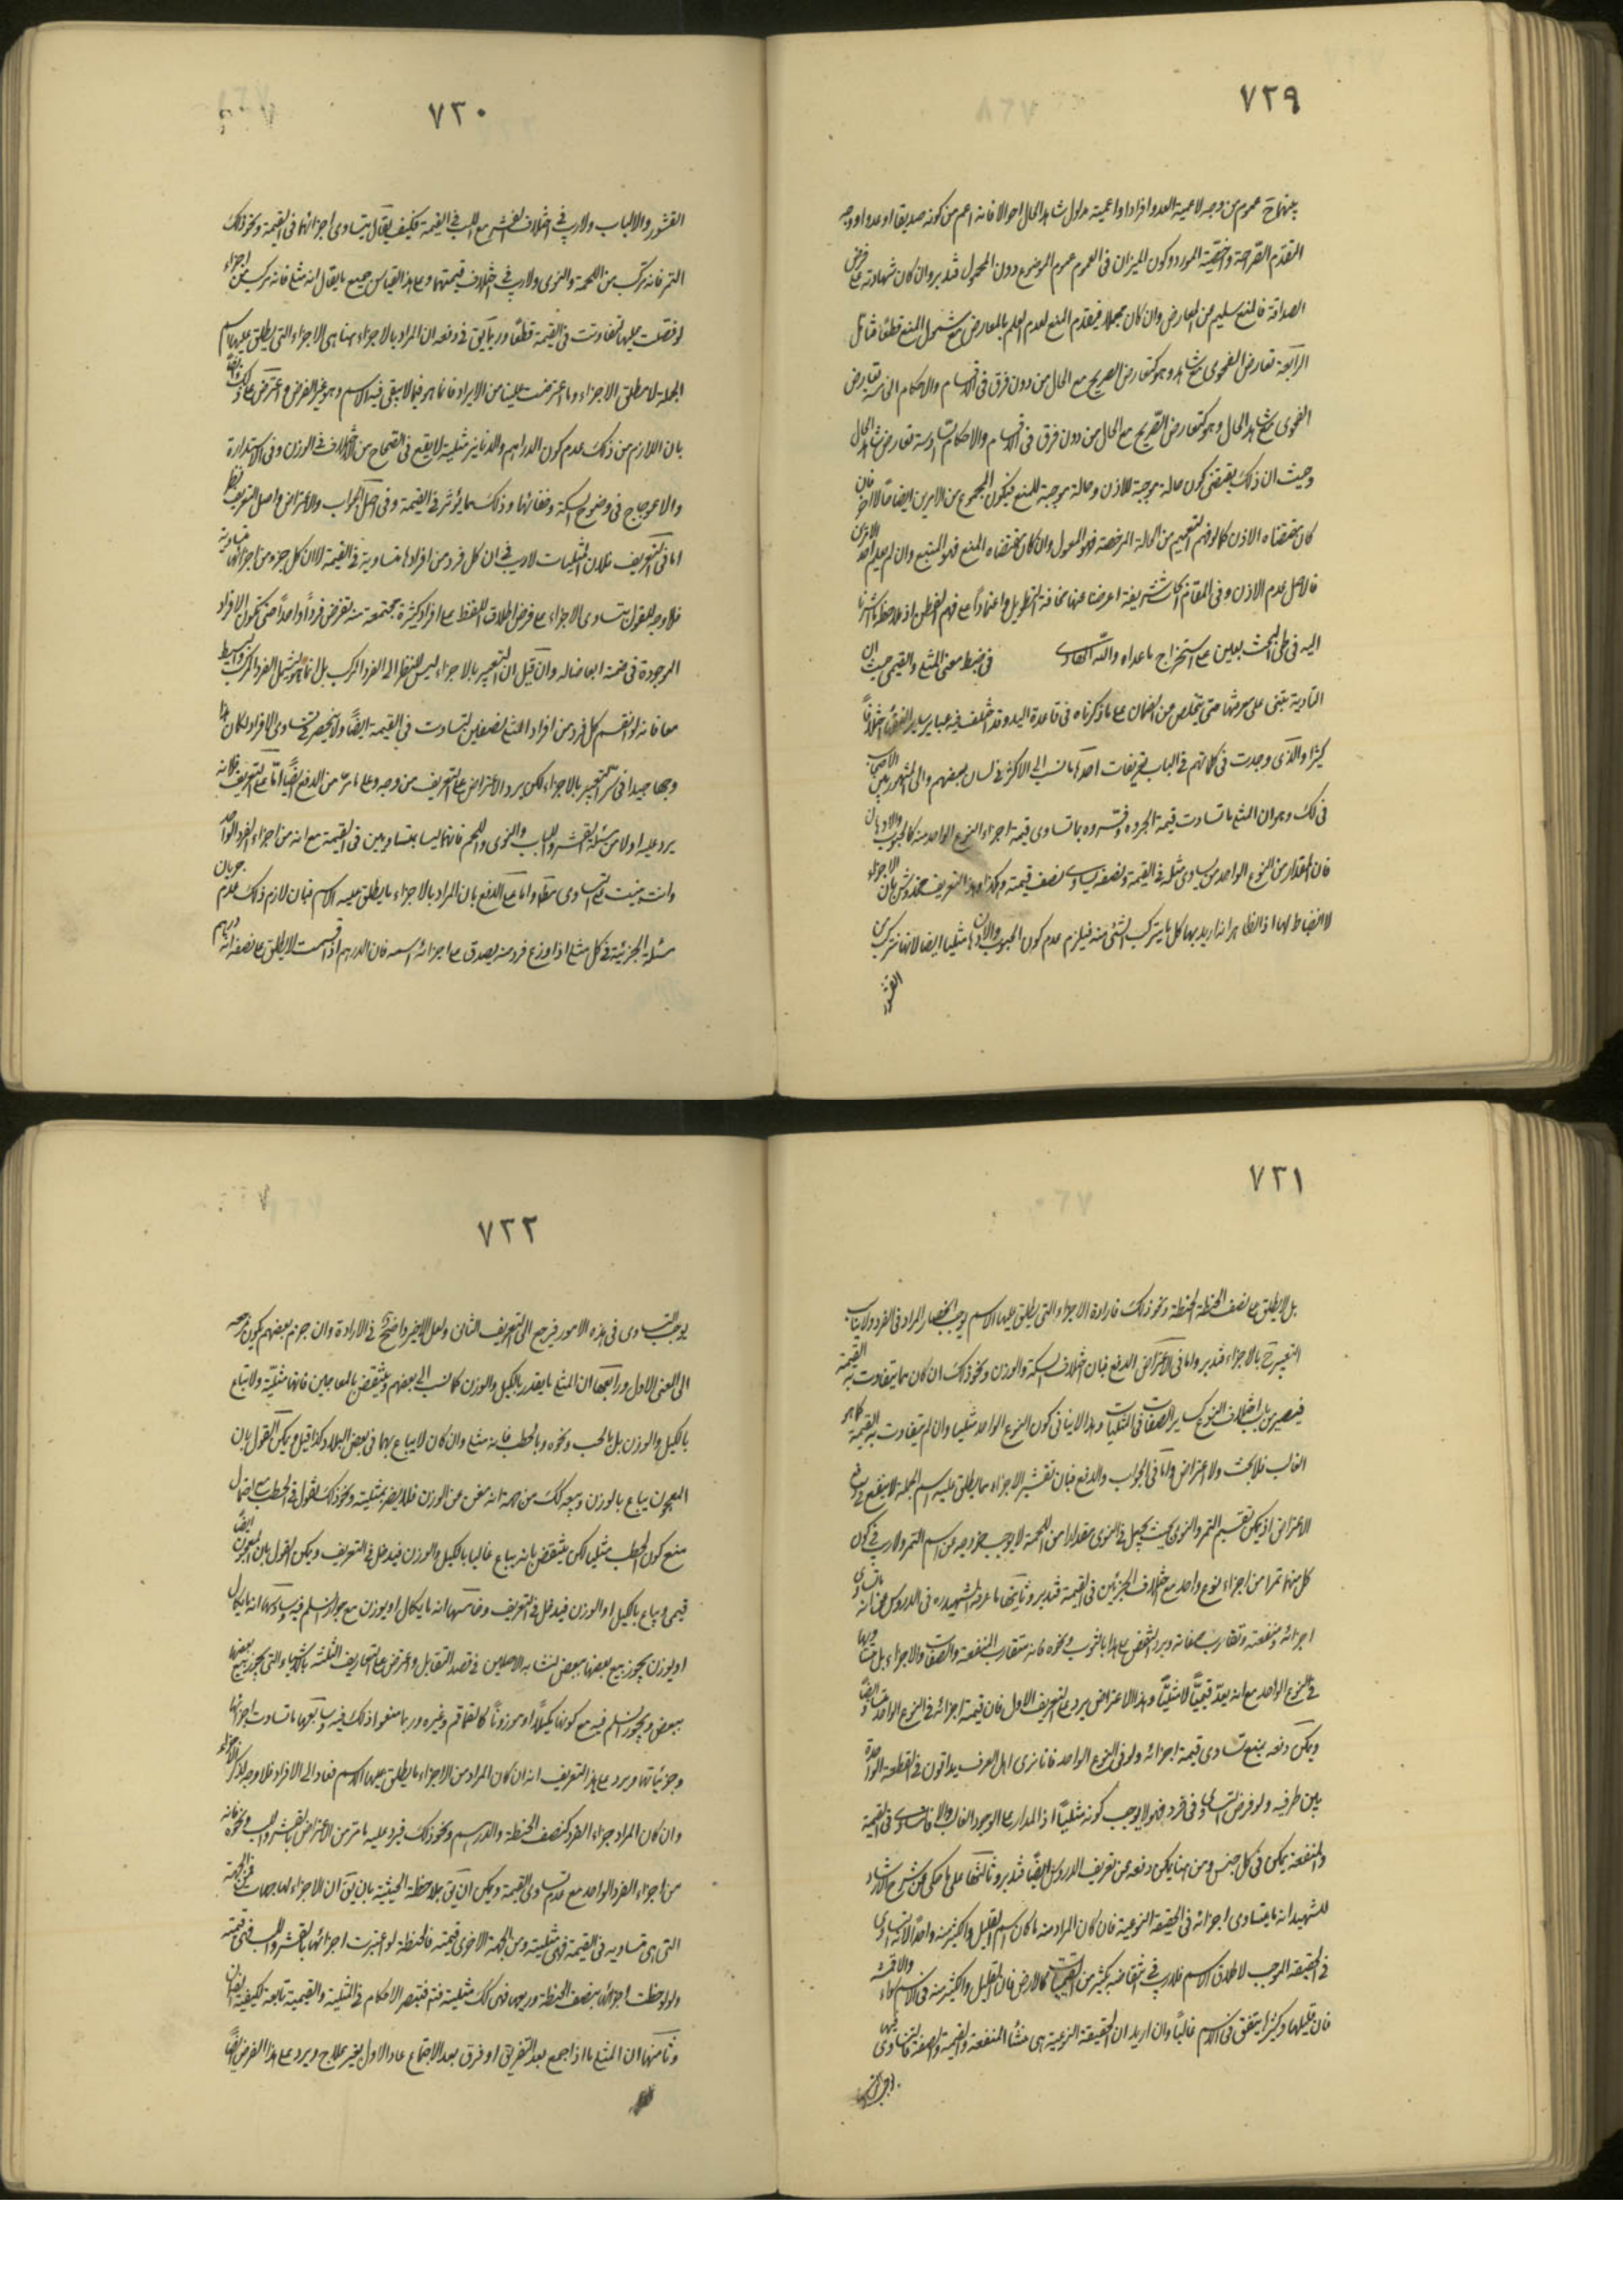 ٧٢٩
بينهما ح عموم من وجه لاعمية العدو افرادا واعمية مدلول شاهد الحال احوالا فانه اعم من كونه صديقا او عدوا ووجه
التقدم الصراحة واخصية المورد وكون الميزان في العموم عموم الموضوع دون المحمول فتدبر وان كان شهادته على فرض
الصداقة فالمنع سليم من المعارض وان كان مجملا فيقدم المنع لعدم العلم بالمعارض مع شمول المنع قطعا فتأمل
الرابعة تعارض الفحوى مع شاهد وهو كتعارض الصريح مع الحال من دون فرق في الاقسام والاحكام الخامسة تعارض
الفحوى مع شاهد الحال وهو كتعارض الصريح مع الحال من دون فرق في الاقسام والاحكام السادسة تعارض شاهد الحال
وحيث ان ذلك يقتضي كون حالة موجبة للاذن وحالة موجبة للمنع فيكون المجموع من الامرين ايضا حالا اخر فان
كان مقتضاه الاذن كما لو فهم التعميم من الحالة المرخصة فهو المعول وان كان مقتضاه المنع فهو المتبع وان لم يعلم احد الامرين
فالاصل عدم الاذن وفي المقام نكات شريفة اعرضنا عنها مخافة التطويل واعتمادا على فهم الفطن اذ ملاحظة ما اشرنا
اليه في طي البحث يعين على استخراج ما عداه والله الهادي في ضبط معنى المثلي والقيمي حيث ان
التأدية تبتني على معرفتهما حتى يتخلص من الضمان على ما ذكرناه في قاعدة اليد وقد اختلف فيه عباير ساير الفقهاء اختلافا
كثيرا والذي وجدت في كلماتهم في الباب تعريفات احدها ما نسب الى الاكثر في لسان بعضهم والى المشهور بين الاصحاب
في لك وهو ان المثلي ما تساوت قيمة اجزائه وفسروه بما تساوى قيمة اجزاء النوع الواحد منه كالحبوب والادهان
فان المقدار من النوع الواحد من يساوي مثله في القيمة ونصفه يساوي نصف قيمته وهكذا وهذا التعريف مخدوش بان الاجزاء
لا انضباط لها اذ الظاهر انه اريد بها كل ما يتركب الشئ منه فيلزم عدم كون الحبوب والادهان مثليا ايضا لانها تتركب من
القشور
٧٣٠
القشور والالباب ولا ريب في اختلاف القشر مع اللب في القيمة فكيف يقال بتساوي اجزائها في القيمة ونحو ذلك
التمر فانه مركب من اللحمة والنوى ولا ريب في اختلاف قيمتهما وعلى هذا القياس جميع ما يقال انه مثلي فانه مركب من اجزاء
لو فصلت عليها تفاوتت في القيمة قطعا وربما يق في دفعه ان المراد بالاجزاء هنا هي الاجزاء التي يطلق عليها اسم
الجملة لا مطلق الاجزاء وما اعترضت علينا من الايراد فانما هو فيما لا يبقى فيه الاسم وهو غير الغرض واعترض على ذلك
بان اللازم من ذلك عدم كون الدراهم والدنانير مثلية لا يقع في الصحاح من الاختلاف في الوزن وفي الاستدارة
والاعوجاج في وضوح السكة وخفائها وذلك مما يؤثر في القيمة وفي اصل الجواب والاعتراض واصل التعريف نظر
اما في التعريف فلان المثليات لا ريب في ان كل فرد من افرادها متساوية في القيمة لا ان كل جزء من اجزائها متساوية
فلا وجه للقول بتساوي الاجزاء على فرض اطلاق اللفظ على افراد كثيرة مجتمعة منه تفرض فردا واحدا حتى تكون الافراد
الموجودة في ضمنه ابعاضا له وان قيل ان التعبير بالاجزاء ليس للنظر الى الفرد المركب بل انما هو يشمل الفرد المركب والبسيط
معا فانه لو انقسم كل فرد من افراد المثلي لنصفين لتساوت في القيمة ايضا ولا ينحصر في تساوي الافراد لكان هذا
وجها جيدا في سر التعبير بالاجزاء لكن يرد الاعتراض على التعريف من وجه وعلى ما مر من الدفع ايضا اما على التعريف فلانه
يرد عليه اولا من مسئلة القشر واللباب والنوى واللحم فانهما ليسا بمتساويين في القيمة مع انه من اجزاء الفرد الواحد
وانت بنيت على التساوي مطلقا واما على الدفع بان المراد بالاجزاء ما يطلق عليه الاسم فبان لازم ذلك عدم جريان
مسئلة الجزئية في كل مثلي اذا وزع فرد منه يصدق على اجزائه اسمه فان الدرهم اذا قسمت لا يطلق على نصفه انه درهم
٧٣١
بل لا يطلق على نصف الحنطة الحنطة ونحو ذلك فارادة الاجزاء التي يطلق عليها الاسم يوجب انحصار المراد في الفرد ولا يناسب
التعبير ح بالاجزاء فتدبر واما في الاعتراض الدفع فبان اختلاف السكة والوزن ونحو ذلك ان كان مما يتفاوت به القيمة
فيصير من باب اختلاف النوع كساير الصفات في المثليات وهذا لا ينافي كون النوع الواحد مثليا وان لم يتفاوت به القيمة كما هو
الغالب فلا بحث ولا اعتراض واما في الجواب والدفع فبان تفسير الاجزاء بما يطلق عليه اسم الجملة لا ينفع في دفع
الاعتراض اذ يمكن تقسيم التمر والنوى بحيث يجعل في النوى مقدارا من اللحمة لا يوجب خروجه من اسم التمر ولا ريب في كون
كل منهما تمرا من اجزاء نوع واحد مع اختلاف الجزئين في القيمة فتدبر وثانيها ما عرفه الشهيد ره في الدروس من انه ما تساوى
اجزائه ومنفعته وتقارب صفاته ويرد النقض على هذا بالثوب ونحوه فانه متقارب المنفعة والصفات والاجزاء بل متساويها
في النوع الواحد مع انه يعد قيميا لا مثليا وهذا الاعتراض يرد على التعريف الاول فان قيمة اجزائه في النوع الواحد متساوية ايضا
ويمكن دفعه بمنع تساوي قيمة اجزائه ولو في النوع الواحد فانا نرى اهل العرف يداقون في القطعة الواحدة
بين طرفيه ولو فرض التساوي في فرد فهو لا يوجب كونه مثليا اذ المدار على الوجود الغالب والا فالتساوي في القيمة
والمنفعة يمكن في كل جنس ومن هنا يمكن دفعه عن تعريف الدروس ايضا فتدبر وثالثها على ما حكي عن شرح الارشاد
للشهيد انه ما يتساوى اجزائه في الحقيقة النوعية فان كان المراد منه ما كان اسم القليل والكثير منه واحدا لانه التساوي
في الحقيقة الموجب لاطلاق الاسم فلا ريب في انتقاضه بكثير من القيميات كالارض فان القليل والكثير منه في الاسم سواء والاقمشة
فان قليلها وكثيرها يتفق في الاسم غالبا وان اريد ان الحقيقة النوعية هي منشأ المنفعة والقيمة والصفة فالتساوي فيها
اجزائها
٧٣٢
يوجب التساوي في هذه الامور فيرجع الى التعريف الثاني ولعل الاخير واضح في الارادة وان جزم بعضهم بكون مرجعه
الى المعنى الاول ورابعها ان المثلي ما يقدر بالكيل والوزن كما نسب الى بعضهم وينتقض بالمعاجين فانها مثلية ولا تباع
بالكيل والوزن بل بالحب ونحوه وبالحطب فانه مثلي وان كان لا يباع بهما في بعض البلاد وكذا قيل ويمكن القول بان
المعجون يباع بالوزن وبيعه كذلك من جهة انه مغن عن الوزن فلا يضر بمثليته ونحو ذلك نقول في الحطب مع احتمال
منع كون الحطب مثليا لكن ينتقض بانه يباع غالبا بالكيل والوزن فيدخل في التعريف ويمكن القول بان المعجون ايضا
قيمي ويباع بالكيل او الوزن فيدخل في التعريف وخامسها انه ما يكال او يوزن مع جواز السلم فيه وسادسها انه ما يكال
او يوزن يجوز بيع بعضها ببعض لتشابه الاصلين في قصد التقابل واعترض على التعاريف الثلثة بالاشياء التي يجوز بيع بعضها
ببعض ويجوز السلم فيه مع كونها مكيلا او موزونا كالقماقم وغيره وربما منعوا ذلك فيه وسابعها ما تساوت اجزائها
وجزئياتها ويرد على هذا التعريف انه ان كان المراد من الاجزاء ما يطلق عليها الاسم فعاد الى الافراد فلا وجه لذكر الاجزاء
وان كان المراد اجزاء الفرد كنصف الحنطة والدرهم ونحو ذلك فيرد عليه ما مر من الاعتراض بالقشر واللب ونحوه فانه
من اجزاء الفرد الواحد مع عدم تساوي القيمة ويمكن ان يق بملاحظة الحيثية بان يق ان الاجزاء لها جهات فمن الجهة
التي هي متساوية في القيمة فهي مثلية ومن الجهة الاخرى قيمته فالحنطة لو اعتبرت اجزائها بالقشر واللب فهي قيمية
ولو لوحظت اجزائها بنصف الحنطة وربعها فهي كذلك مثلية فتعتبر الاحكام في المثلية والقيمية تابعة لكيفية
وثامنها ان المثلي ما اذا جمع بعد التفريق او فرق بعد الاجتماع عاد الاول بغير علاج ويرد على هذا الفرض ايضا